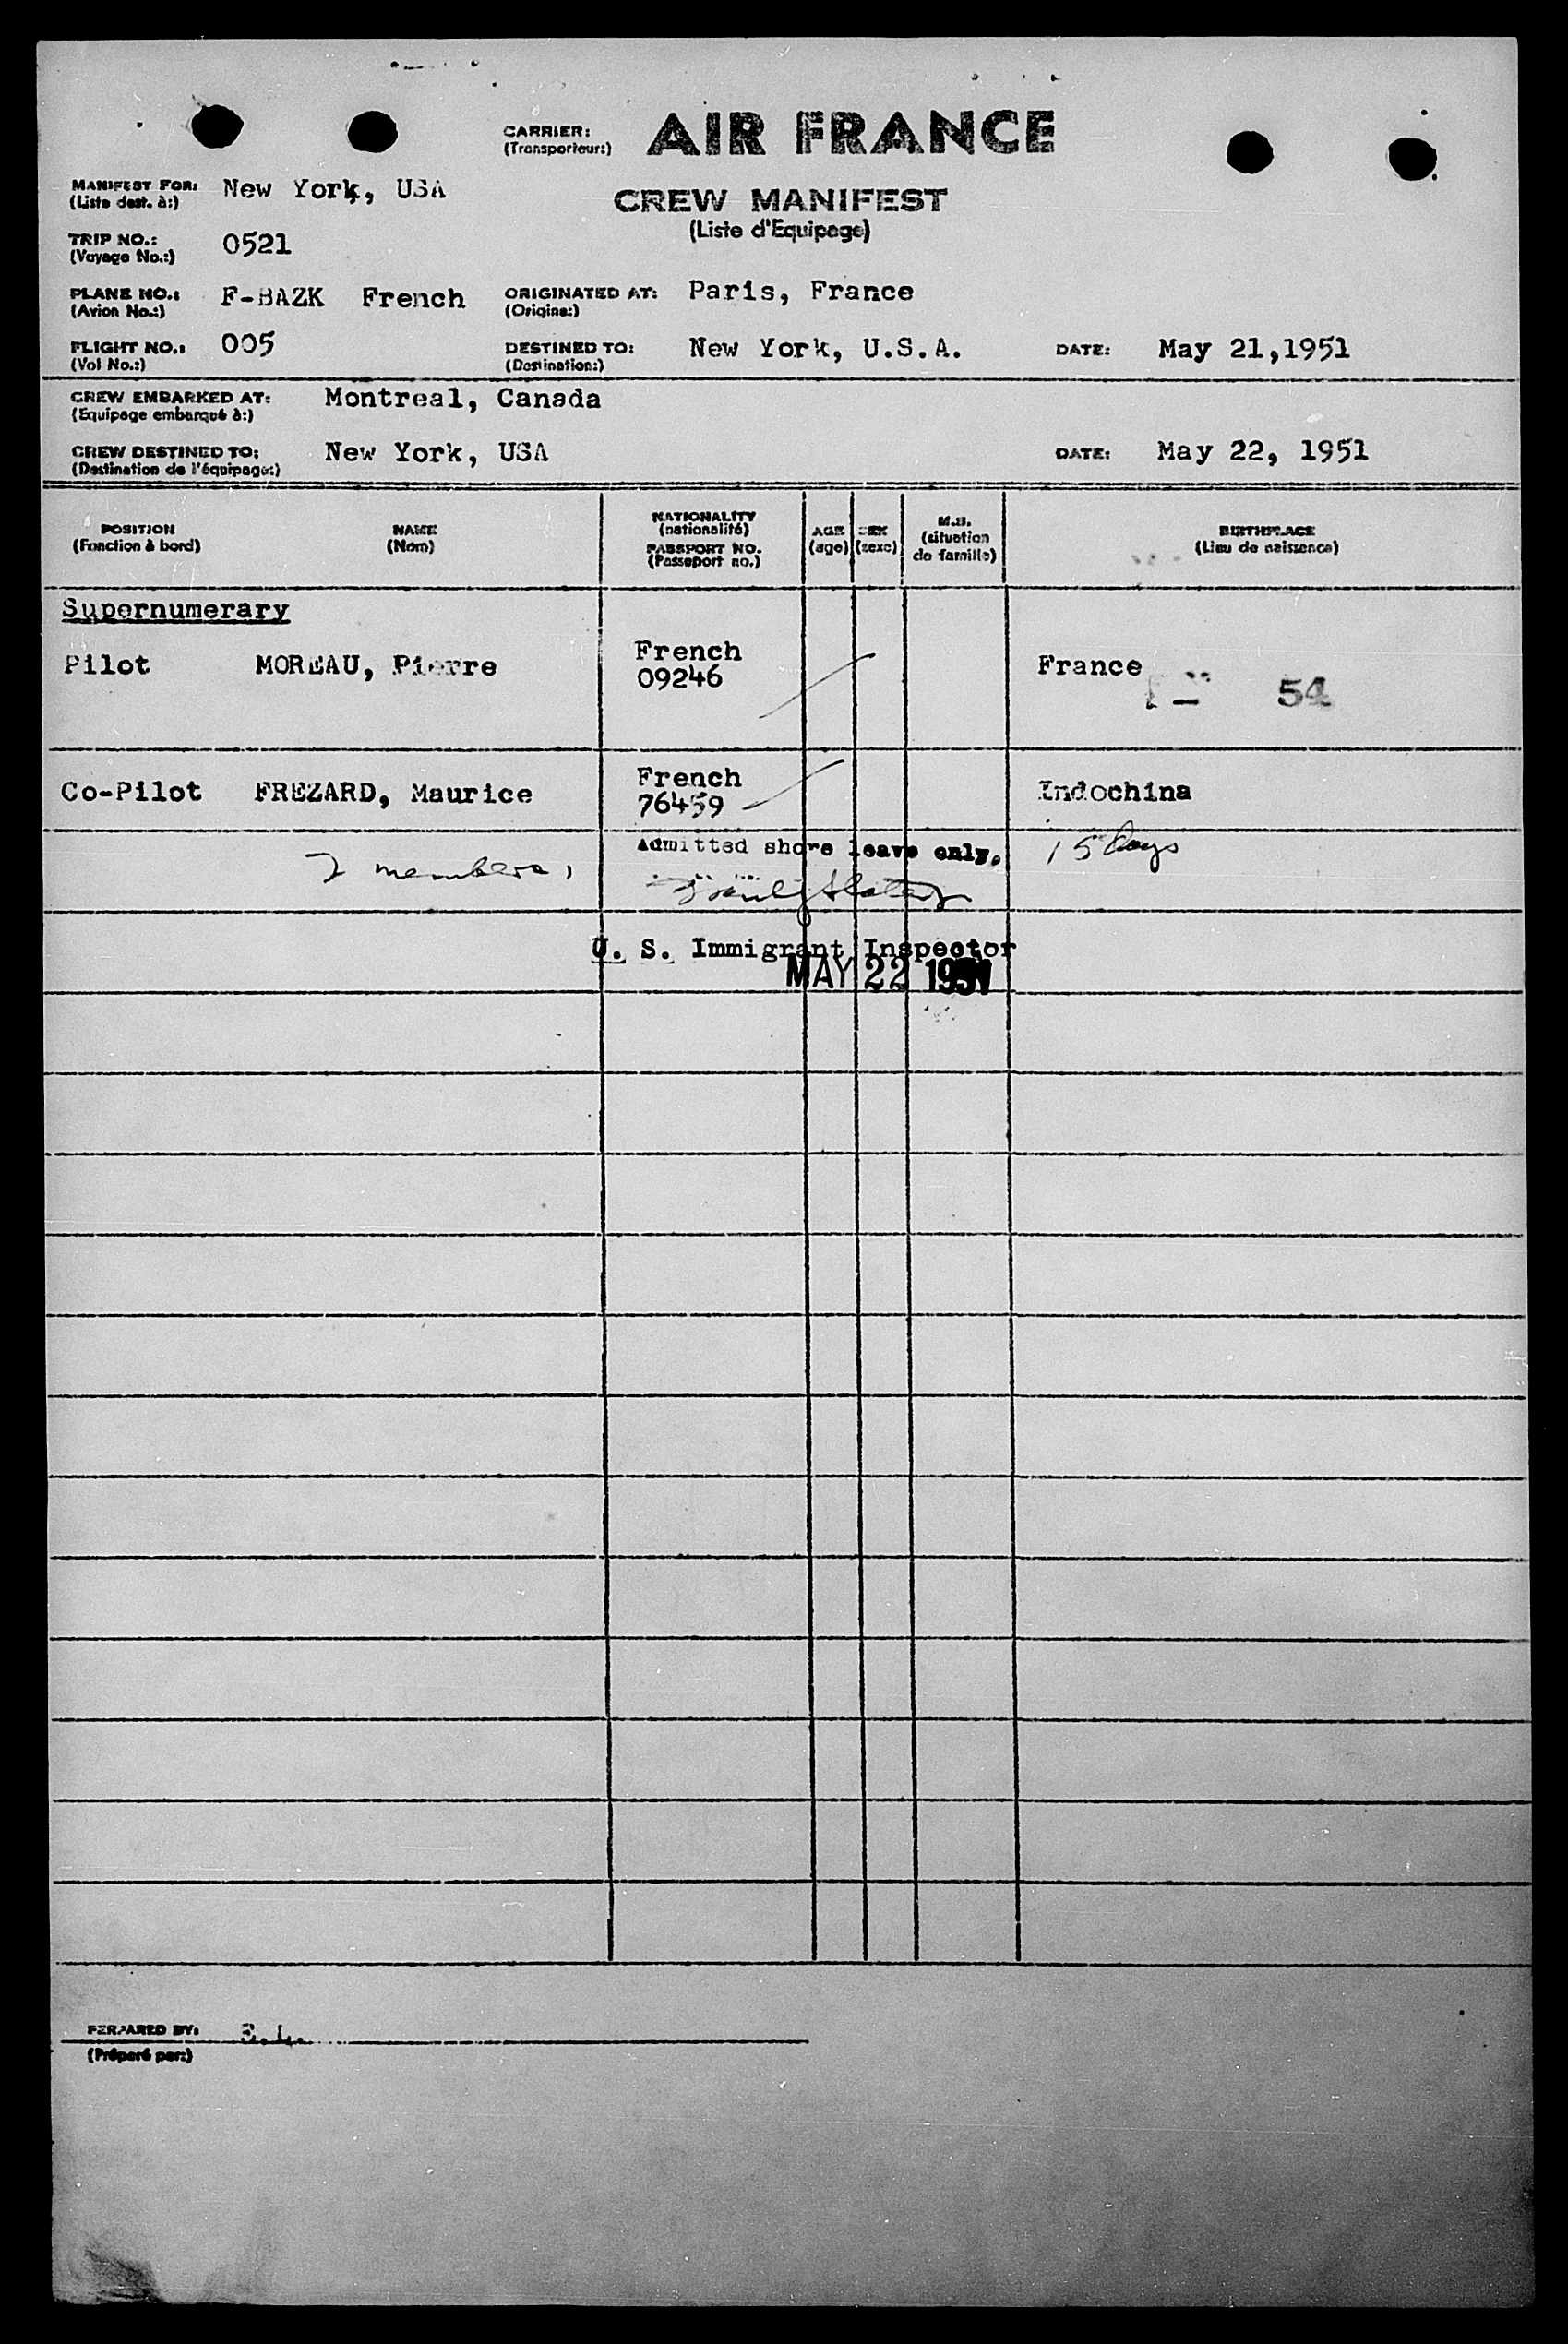 CARRIER: AIR FRANCE
(Transporteur:)
MANIFEST FOR: New York, USA
(Liste dest. à:)
CREW MANIFEST
(Liste d'Equipage)
TRIP NO.: 0521
(Voyage No.:)
PLANE NO.: F-BAZK French ORIGINATED AT: Paris, France
(Avion No.:) (Origine:)
FLIGHT NO.: 005 DESTINED TO: New York, U.S.A. DATE: May 21,1951
(Vol No.:) (Destination:)
CREW EMBARKED AT: Montreal, Canada
(Equipage embarqué à:)
CREW DESTINED TO: New York, USA DATE: May 22, 1951
(Destination de l'équipage:)
POSITION NAME NATIONALITY AGE SEX M.S. BIRTHPLACE
(Fonction à bord) (Nom) (nationalité) (age) (sexe) (situation de famille) (Lieu de naissance)
PASSPORT NO.
(Passeport no.)
Supernumerary
Pilot MOREAU, Pierre French France
09246
54
Co-Pilot FREZARD, Maurice French Indochina
76459
2 members, Admitted shore leave only. 15 days
U. S. Immigrant Inspector
MAY 22 1951
PERPARED BY:
(Préparé par:)